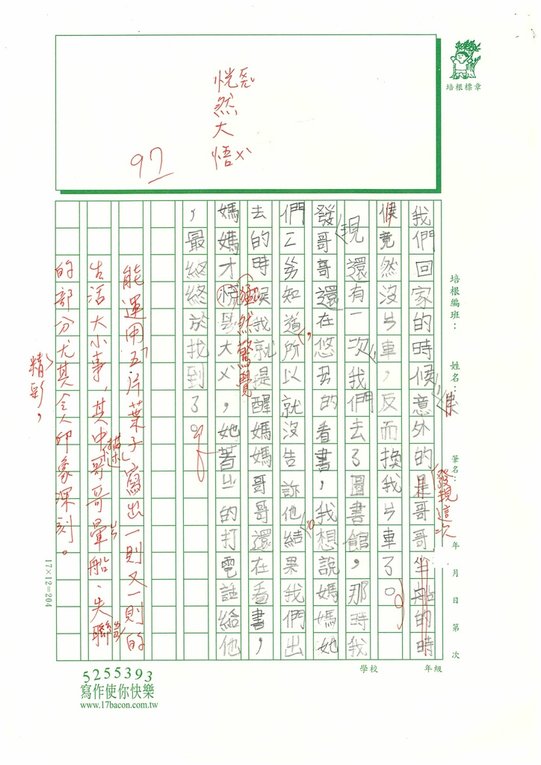 恍然大悟
97
培根標章
培根編班：
姓名：
筆名：
年 月 日 第 次
我們回家的時候意外的是哥哥坐船的時
發現這次
候竟然沒ㄩ車，反而換我ㄩ車了。
還有一次我們去了圖書館，那時我
發現哥哥還在悠ㄒ的看書，我想說媽媽她
們ㄧㄉ知道所以就沒告訴他結果我們出
去的時候我就提醒媽媽哥哥還在看書，
猛然驚覺
媽媽才大，她著的打電話給他
，最終終於找到了。
能運用五片葉子寫出一則又一則的
生活大小事，其中描述哥哥暈船、失聯
的部分尤其令人印象深刻。
精彩，
17×12=204
學校 年級
5255393
寫作使你快樂
www.17bacon.com.tw